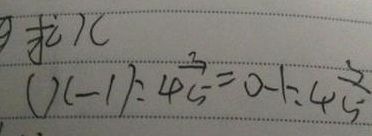 求X
(X-1):4 3/5=0.1:4 3/5